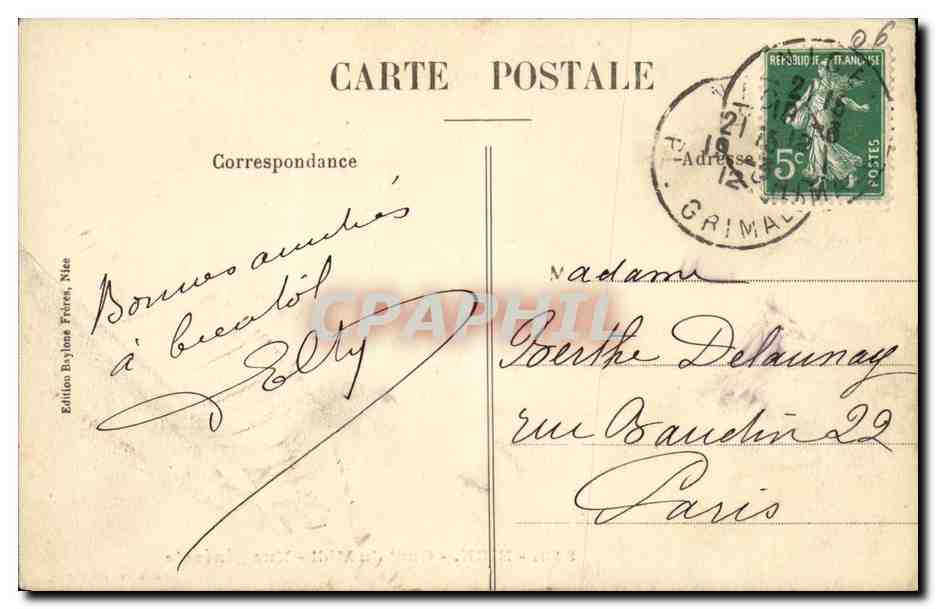 06
CARTE POSTALE
Correspondance
Adresse
REPUBLIQUE FRANÇAISE
5c
POSTES
21
19
12
GRIMAL
Bonnes amitiés
à bientôt
DElty
Madame
Berthe Delaunay
rue Baudin 22
Paris
Edition Baylone Frères, Nice
CPAPHIL